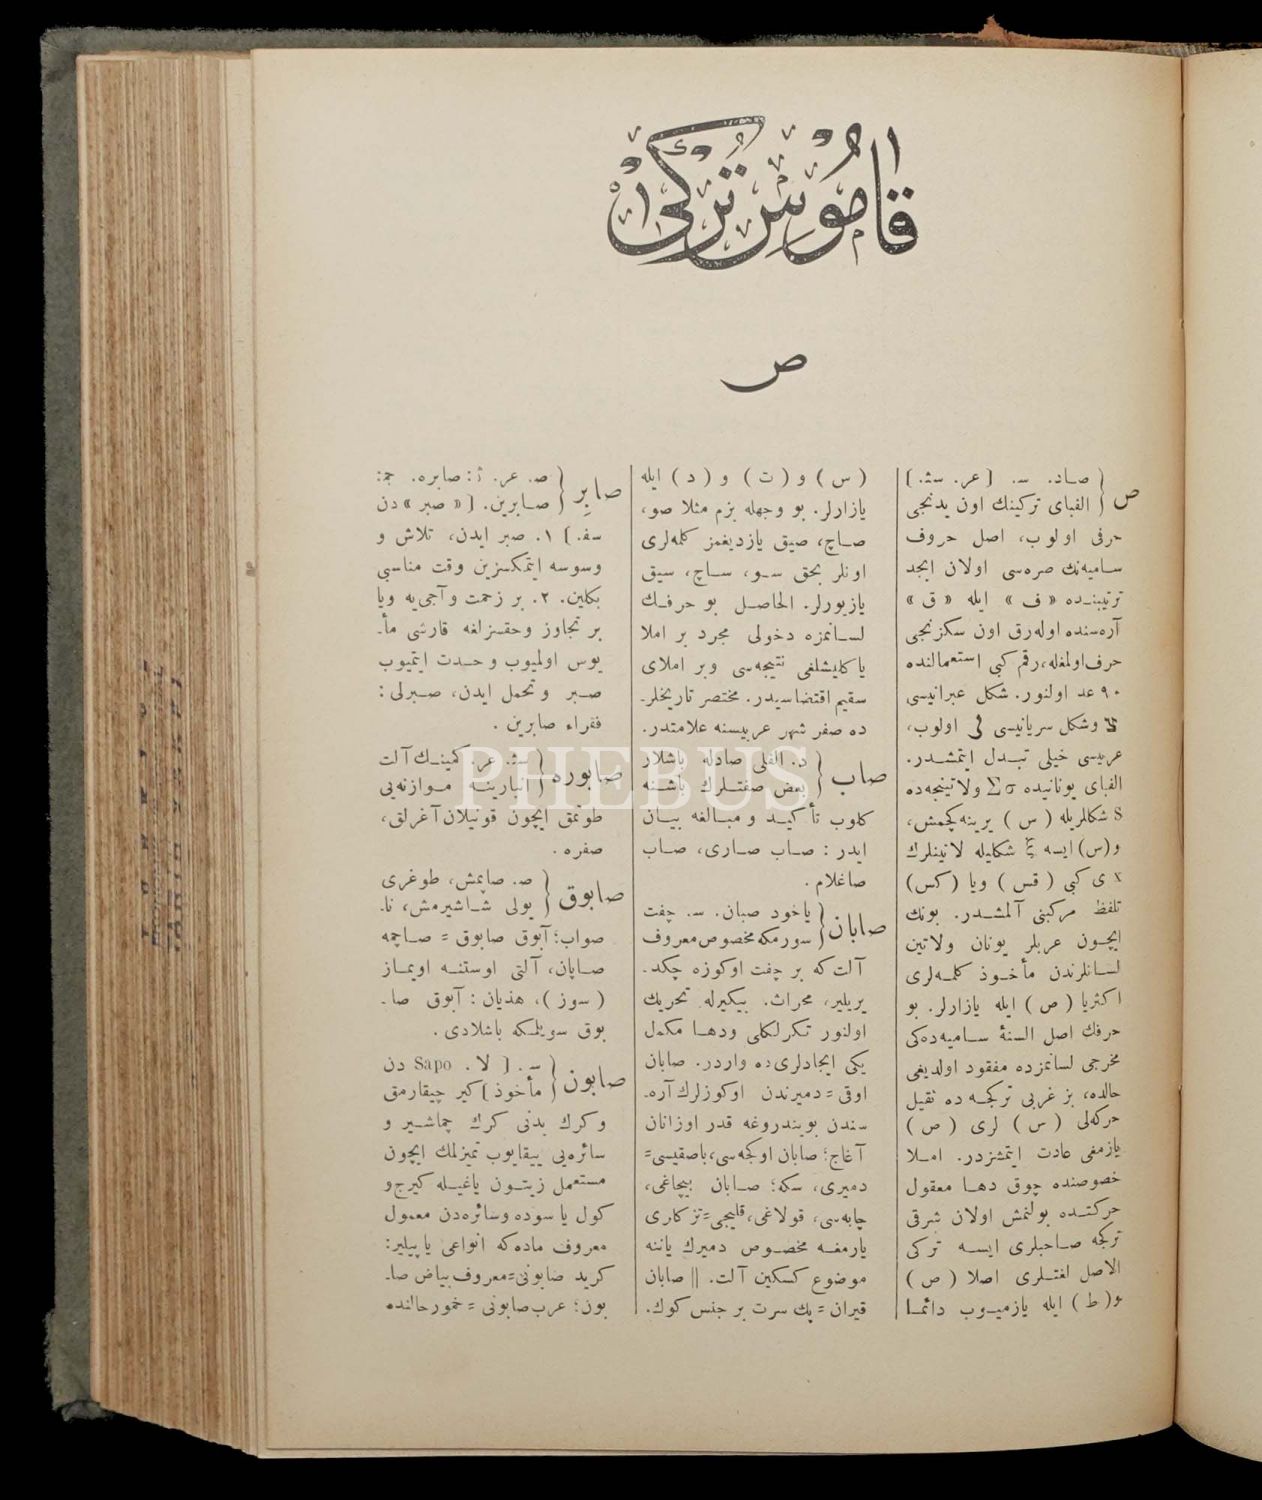 قاموس تركی
ص
ص { صاد. س. [عر. سث.]
الفبای تركینك اون یدنجی
حرفی اولوب، اصل حروف
سامیه‌نك صره‌سی اولان ابجد
ترتیبنده «ف» ایله «ق»
آره‌سنده اوله‌رق اون سكزنجی
حرف اولمغله، رقم كبی استعمالنده
٩٠ عد اولنور. شكل عبرانیسی
צ وشكل سریانیسی اولوب،
عربیسی خیلی تبدل ایتمشدر.
الفبای یونانیده Σσ ولاتینجه‌ده
S شكللریله (س) یرینه كچمش،
و(س) ایسه ξ شكلیله لاتینلرك
x ی كبی (قس) ویا (كس)
تلفظ مركبنی آلمشدر. بونك
ایچون عربلر یونان ولاتین
لسانلرندن مأخوذ كلمه‌لری
اكثریا (ص) ایله یازارلر. بو
حرفك اصل السنۀ سامیه‌ده‌كی
مخرجی لسانمزده مفقود اولدیغی
حالده، بز غربی تركجه ده ثقیل
حركه‌لی (س) لری (ص)
یازمغی عادت ایتمشزدر. املا
خصوصنده چوق دها معقول
حركتده بولنمش اولان شرقی
تركجه صاحبلری ایسه تركی
الاصل لغتلری اصلا (ص)
و(ط) ایله یازمیوب دائما
(س) و (ت) و (د) ایله
یازارلر. بو وجهله بزم مثلا صو،
صاچ، صیق یازدیغمز كلمه‌لری
اونلر بحق سو، ساچ، سیق
یازیورلر. الحاصل بو حرفك
لسانمزه دخولی مجرد بر املا
یاكلیشلغی نتیجه‌سی وبر املای
سقیم اقتضاسیدر. مختصر تاریخلر-
ده صفر شهر عربیسنه علامتدر.
صاب { د. الفلی صادله باشلار
بعض صفتلرك باشنه
كلوب تأكید و مبالغه بیان
ایدر: صاب صاری، صاب
صاغلام.
صابان { یاخود صبان. س. چفت
سورمكه مخصوص معروف
آلت كه بر چفت اوكوزه چكد-
یریلیر، محراث. بیكیرله تحریك
اولنور تكرلكلی ودها مكمل
یكی ایجادلری ده واردر. صابان
اوقی = دمیرندن اوكوزلرك آره-
سندن بویندروغه قدر اوزانان
آغاج؛ صابان اوكجه‌سی، باصقیسی =
دمیری، سكه؛ صابان بیچاغی،
چابه‌سی، قولاغی، قلیجی = تزكاری
یارمغه مخصوص دمیرك یاننه
موضوع كسكین آلت. || صابان
قیران = پك سرت بر جنس كوك.
صابر { ص. عر. ث: صابره. ج:
صابرین. [«صبر» دن
سف.] ١. صبر ایدن، تلاش و
وسوسه ایتمكسزین وقت مناسبی
بكلین. ٢. بر زحمت و آجی‌یه ویا
بر تجاوز وحقسزلغه قارشی مأ-
یوس اولمیوب وحدت ایتمیوب
صبر وتحمل ایدن، صبرلی:
فقراء صابرین.
صابوره { سث. عر. كمینك آلت
انبارینه موازنه‌یی
طوتمق ایچون قونیلان آغرلق،
صفره.
صابوق { ص. صاپمش، طوغری
یولی شاشیرمش، نا-
صواب؛ آبوق صابوق = صاچمه
صاپان، آلتی اوستنه اویماز
(سوز)، هذیان: آبوق صا-
بوق سویلمكه باشلادی.
صابون { س. [لا. Sapo دن
مأخوذ] كیر چیقارمق
وكرك بدنی كرك چماشیر و
سائره‌یی ییقایوب تمیزلمك ایچون
مستعمل زیتون یاغیله كیرج و
كول یا سوده وسائره‌دن معمول
معروف ماده كه انواعی یاپیلیر:
كرید صابونی = معروف بیاض صا-
بون؛ عرب صابونی = خمور حالنده
PHEBUS